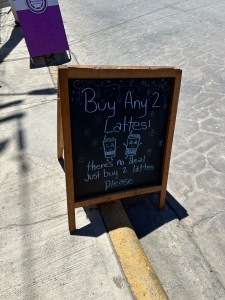 Buy Any 2
Lattes!
there's no deal
just buy 2 lattes
please